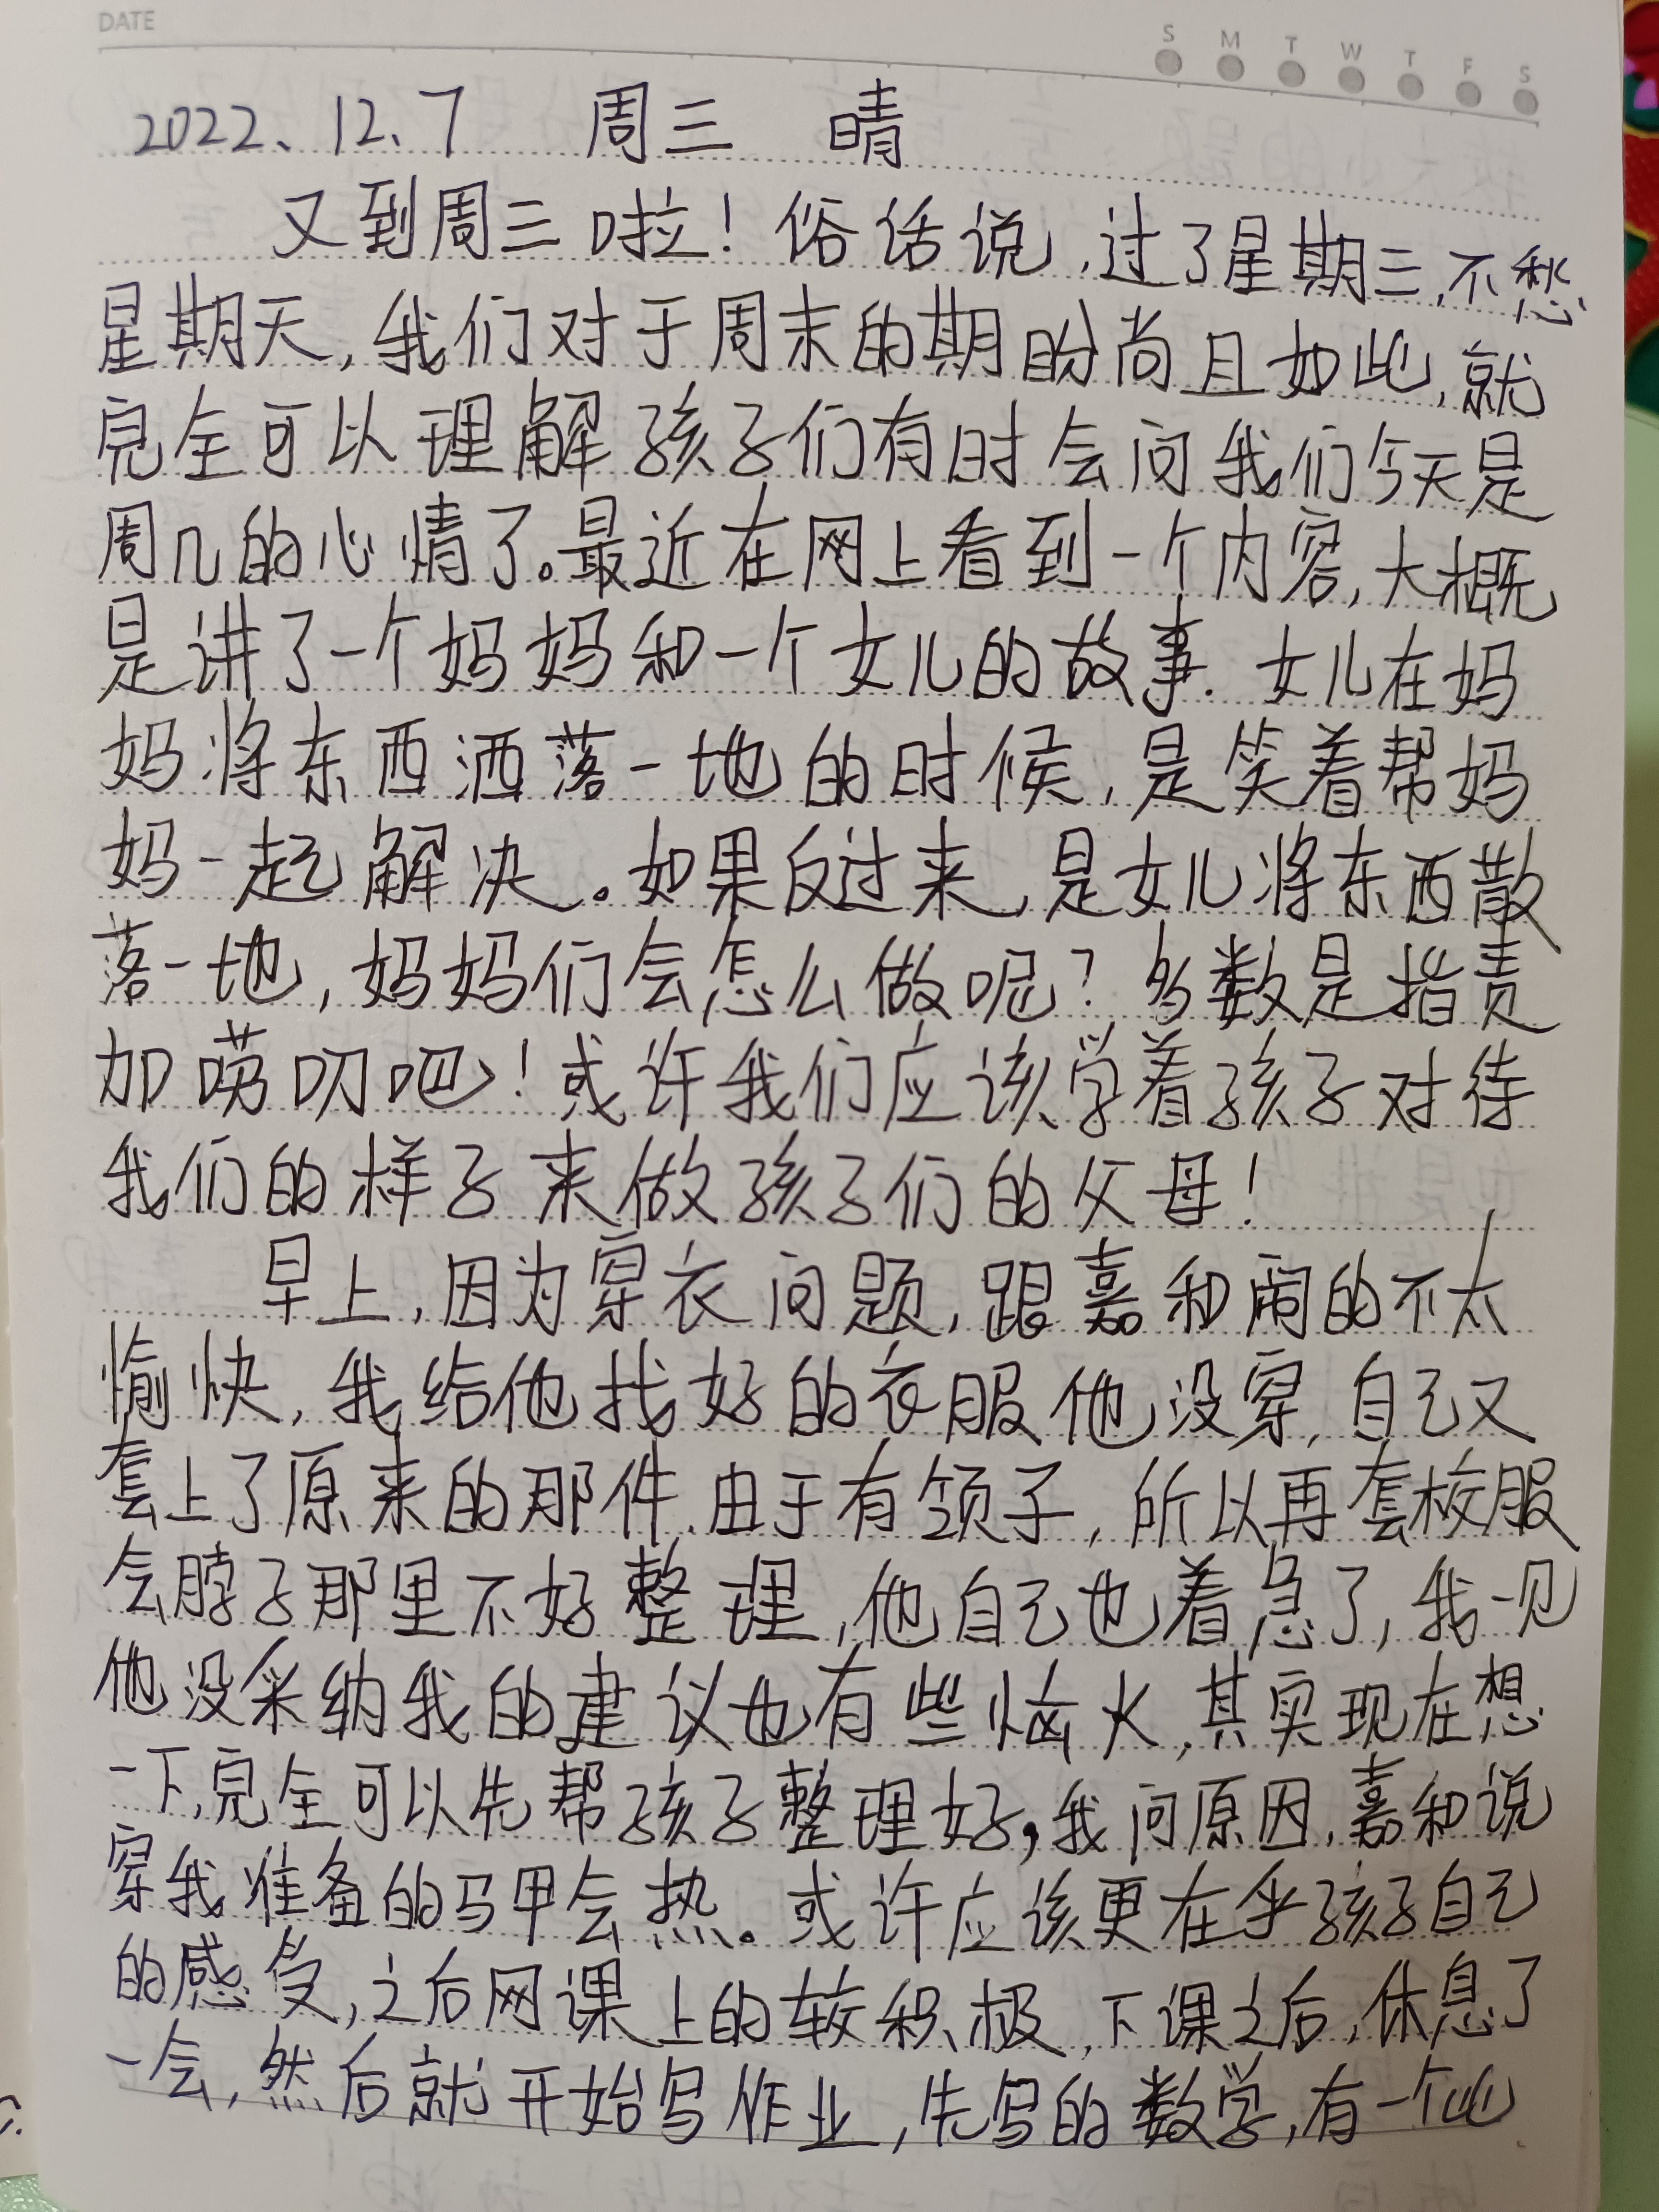 DATE
S M T W T F S
2022、12、7 周三 晴
又到周三啦！俗话说，过了星期三，不愁
星期天，我们对于周末的期盼尚且如此，就
完全可以理解孩子们有时会问我们今天是
周几的心情了。最近在网上看到一个内容，大概
是讲了一个妈妈和一个女儿的故事．女儿在妈
妈将东西洒落一地的时候，是笑着帮妈
妈一起解决。如果反过来，是女儿将东西散
落一地，妈妈们会怎么做呢？多数是指责
加唠叨吧！或许我们应该学着孩子对待
我们的样子来做孩子们的父母！
早上，因为穿衣问题，跟嘉和闹的不太
愉快，我给他找好的衣服他没穿，自己又
套上了原来的那件．由于有领子，所以再套校服
会脖子那里不好整理，他自己也着急了，我一见
他没采纳我的建议也有些恼火，其实现在想
一下，完全可以先帮孩子整理好，我问原因，嘉和说
穿我准备的马甲会热。或许应该更在乎孩子自己
的感受，之后网课上的较积极，下课之后，休息了
一会，然后就开始写作业，先写的数学，有一个比